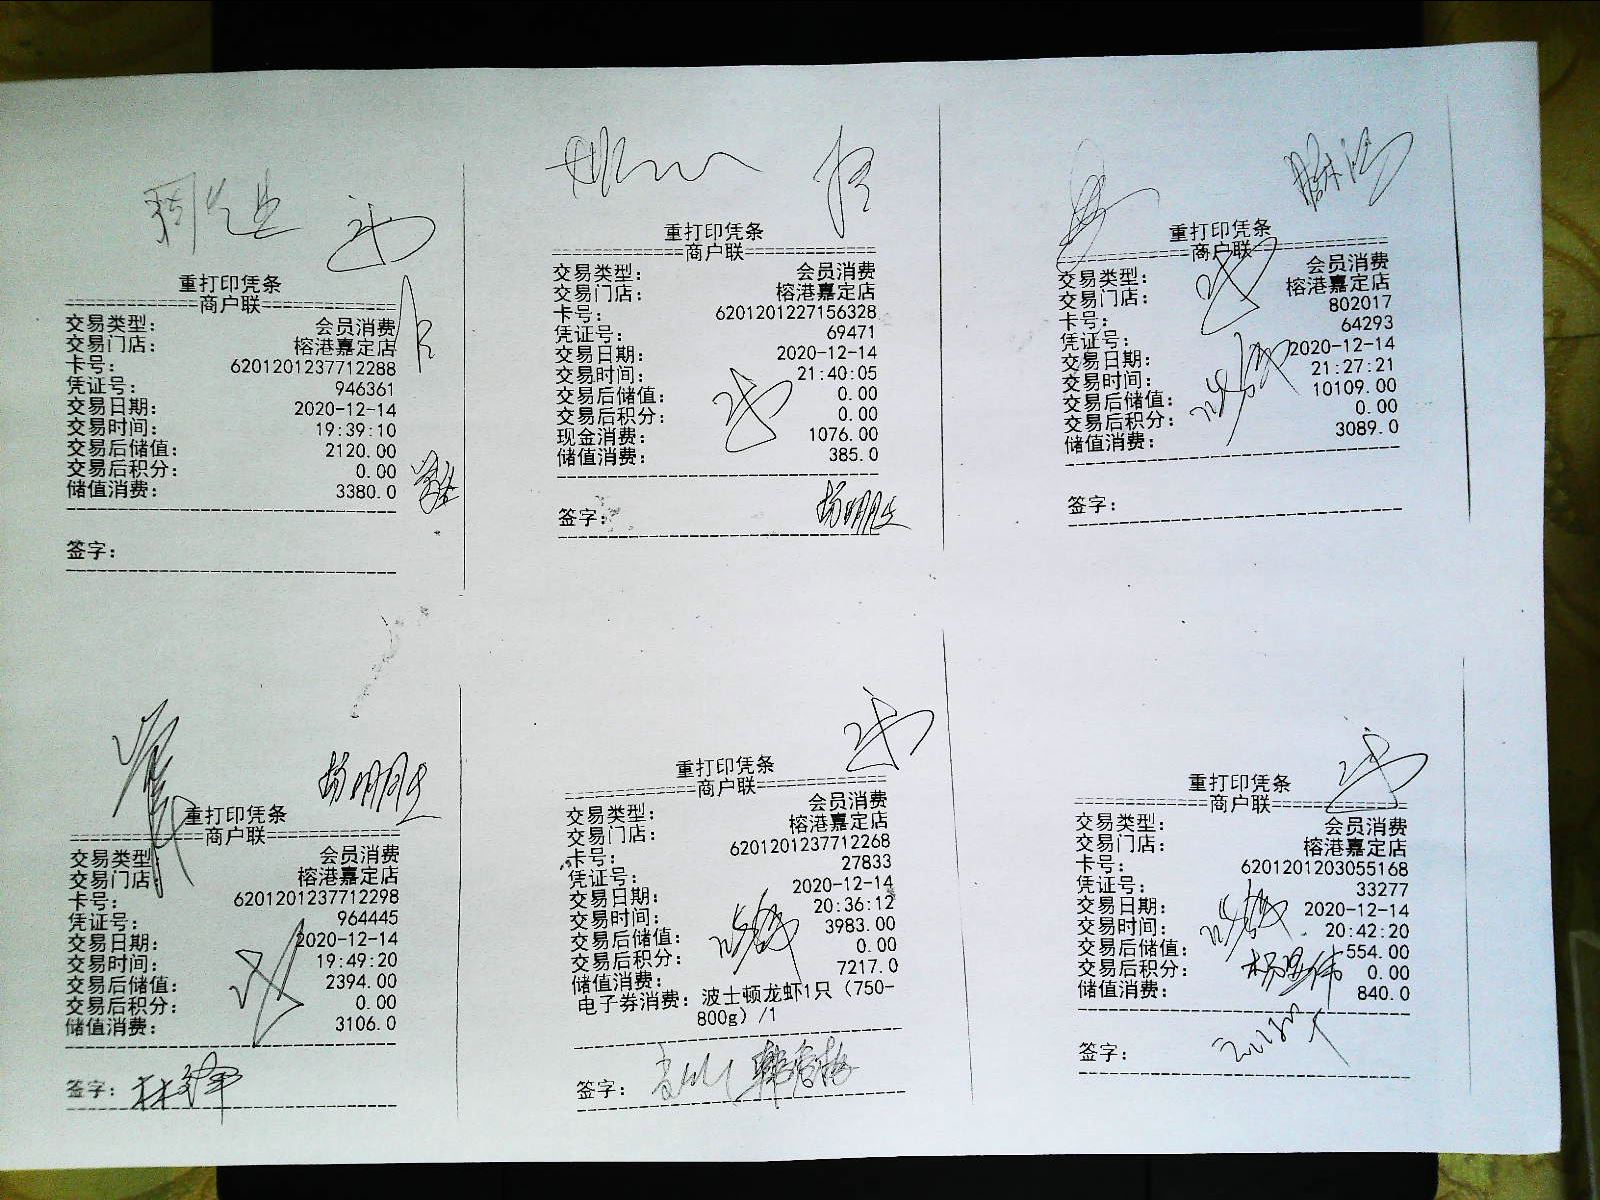 重打印凭条
================商户联================
交易类型： 会员消费
交易门店： 榕港嘉定店
卡号： 6201201237712288
凭证号： 946361
交易日期： 2020-12-14
交易时间： 19:39:10
交易后储值： 2120.00
交易后积分： 0.00
储值消费： 3380.0
签字：
重打印凭条
================商户联================
交易类型： 会员消费
交易门店： 榕港嘉定店
卡号： 6201201227156328
凭证号： 69471
交易日期： 2020-12-14
交易时间： 21:40:05
交易后储值： 0.00
交易后积分： 0.00
现金消费： 1076.00
储值消费： 385.0
签字： 杨明胜
重打印凭条
================商户联================
交易类型： 会员消费
交易门店： 榕港嘉定店
卡号： 802017
凭证号： 64293
交易日期： 2020-12-14
交易时间： 21:27:21
交易后储值： 10109.00
交易后积分： 0.00
储值消费： 3089.0
签字：
重打印凭条
================商户联================
交易类型： 会员消费
交易门店： 榕港嘉定店
卡号： 6201201237712298
凭证号： 964445
交易日期： 2020-12-14
交易时间： 19:49:20
交易后储值： 2394.00
交易后积分： 0.00
储值消费： 3106.0
签字： 林锋
重打印凭条
================商户联================
交易类型： 会员消费
交易门店： 榕港嘉定店
卡号： 6201201237712268
凭证号： 27833
交易日期： 2020-12-14
交易时间： 20:36:12
交易后储值： 3983.00
交易后积分： 0.00
储值消费： 7217.0
电子券消费： 波士顿龙虾1只（750-
800g）/1
签字：
重打印凭条
================商户联================
交易类型： 会员消费
交易门店： 榕港嘉定店
卡号： 6201201203055168
凭证号： 33277
交易日期： 2020-12-14
交易时间： 20:42:20
交易后储值： 554.00
交易后积分： 0.00
储值消费： 840.0
签字：